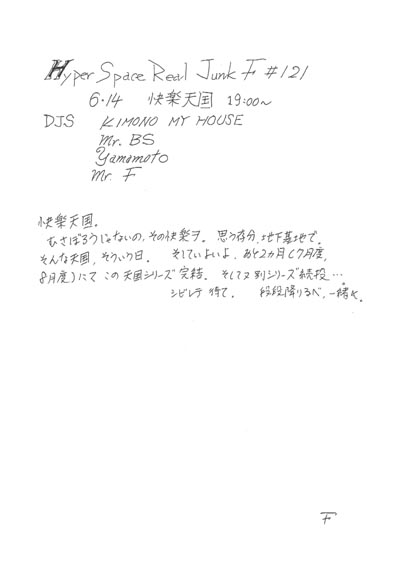 Hyper Space Real Junk F #121
6.14 快楽天国 19:00~
DJS KIMONO MY HOUSE
Mr. BS
Yamamoto
Mr. F
快楽天国。
むさぼろうじゃないの,その快楽ヲ。思う存分,地下基地で。
そんな天国,そういう日。 そしていよいよ,あと2カ月(7月度,
8月度)にて この天国シリーズ完結。そしてヌ別シリーズ続投…
シビレテ待て。 段段降りるべ,一緒に。
F